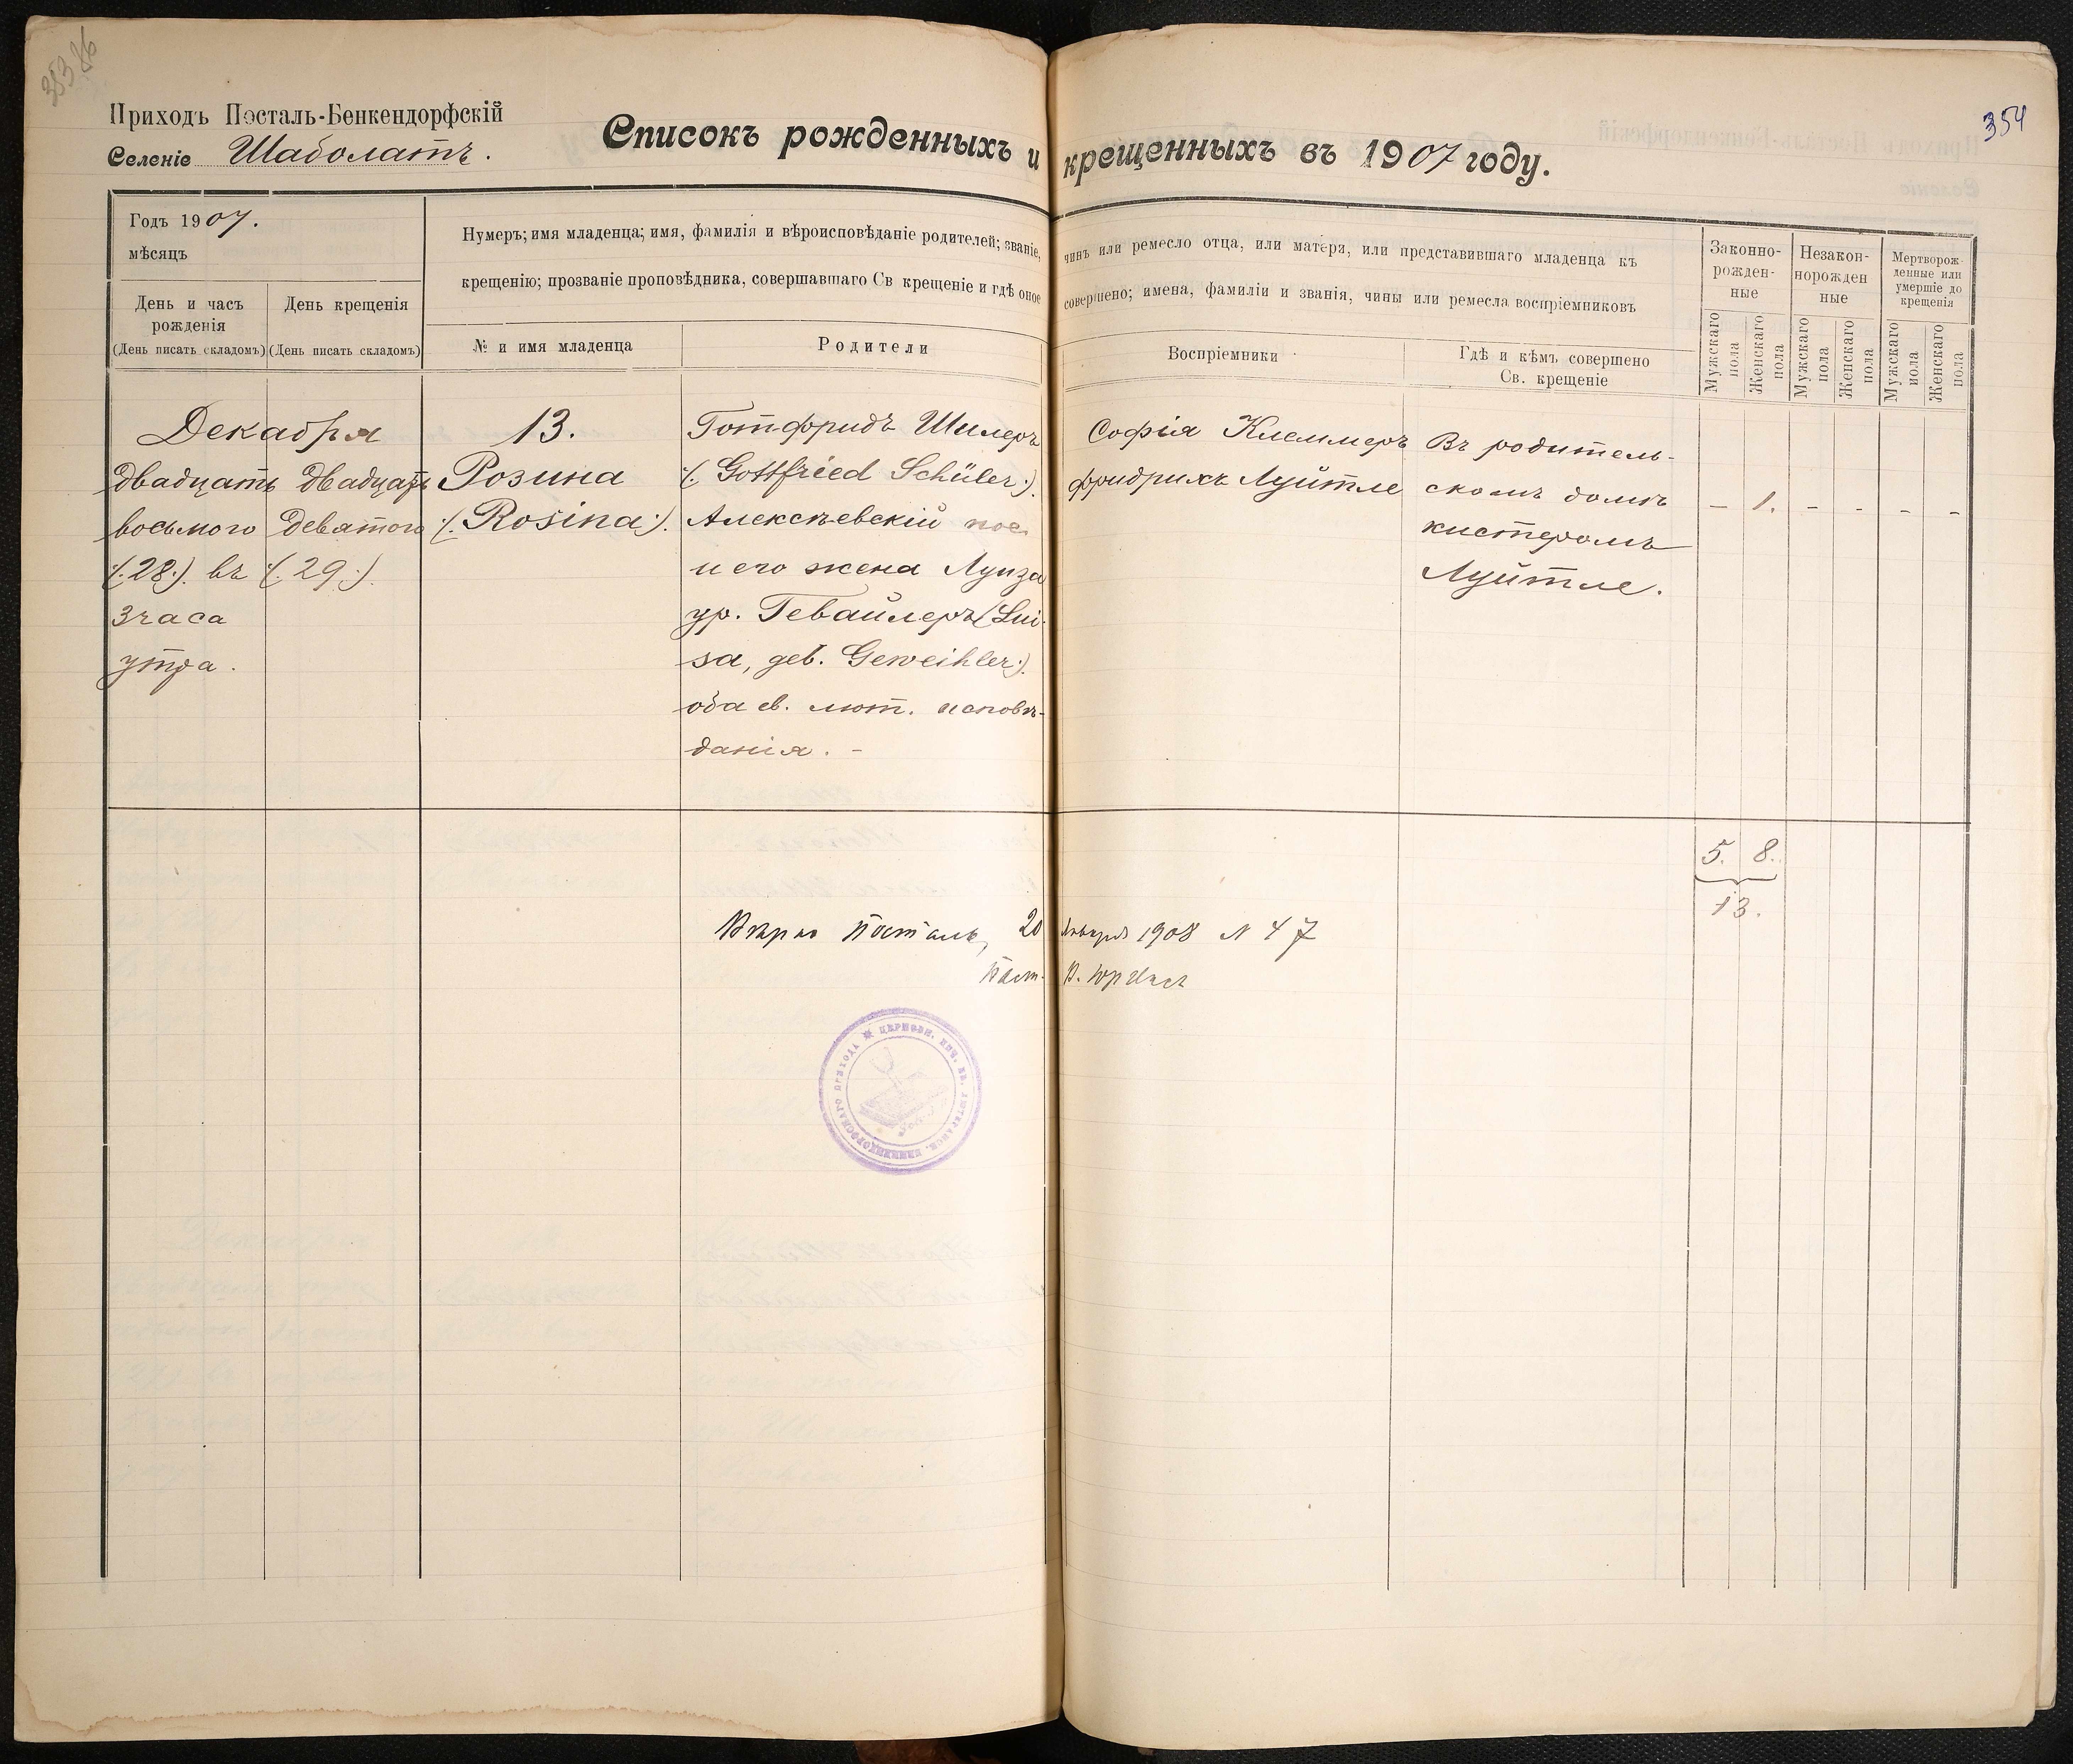 353 86
354
Приходъ Посталь-Бенкендорфскій
Селеніе Шаболатъ.
Списокъ рожденныхъ и крещенныхъ въ 1907 году.
Годъ 1907.
мѣсяцъ
День и часъ
рожденія
(День писать складомъ)
День крещенія
(День писать складомъ)
Нумеръ; имя младенца; имя, фамилія и вѣроисповѣданіе родителей; званіе, чинъ или ремесло отца, или матери, или представившаго младенца къ
крещенію; прозваніе проповѣдника, совершавшаго Св крещеніе и гдѣ оное совершено; имена, фамиліи и званія, чины или ремесла воспріемниковъ
№ и имя младенца
Родители
Воспріемники
Гдѣ и кѣмъ совершено
Св. крещеніе
Законно-
рожден-
ные
Незакон-
норожден
ные
Мертворож-
денные или
умершіе до
крещенія
Мужскаго
пола
Женскаго
пола
Мужскаго
пола
Женскаго
пола
Мужскаго
пола
Женскаго
пола
Декабря
двадцать
восьмого
(:28:). въ
3 часа
утра.
двадцать
девятого
(:29:).
13.
Розина
(:Rosina:).
Готфридъ Шилеръ
(: Gottfried Schüler:).
Алексѣевскій пос.
и его жена Луиза
ур. Гевайлеръ (Lui-
sa, geb. Geweihler:).
оба ев. лют. исповѣ-
данія. -
Софія Клеммеръ
Фридрихъ Луйтле
Въ родитель-
скомъ домѣ
кистеромъ
Луйтле.
- 1. - - - -
5. 8.
13.
Вѣрно Посталь, 20 Января 1908 N 47
Паст.